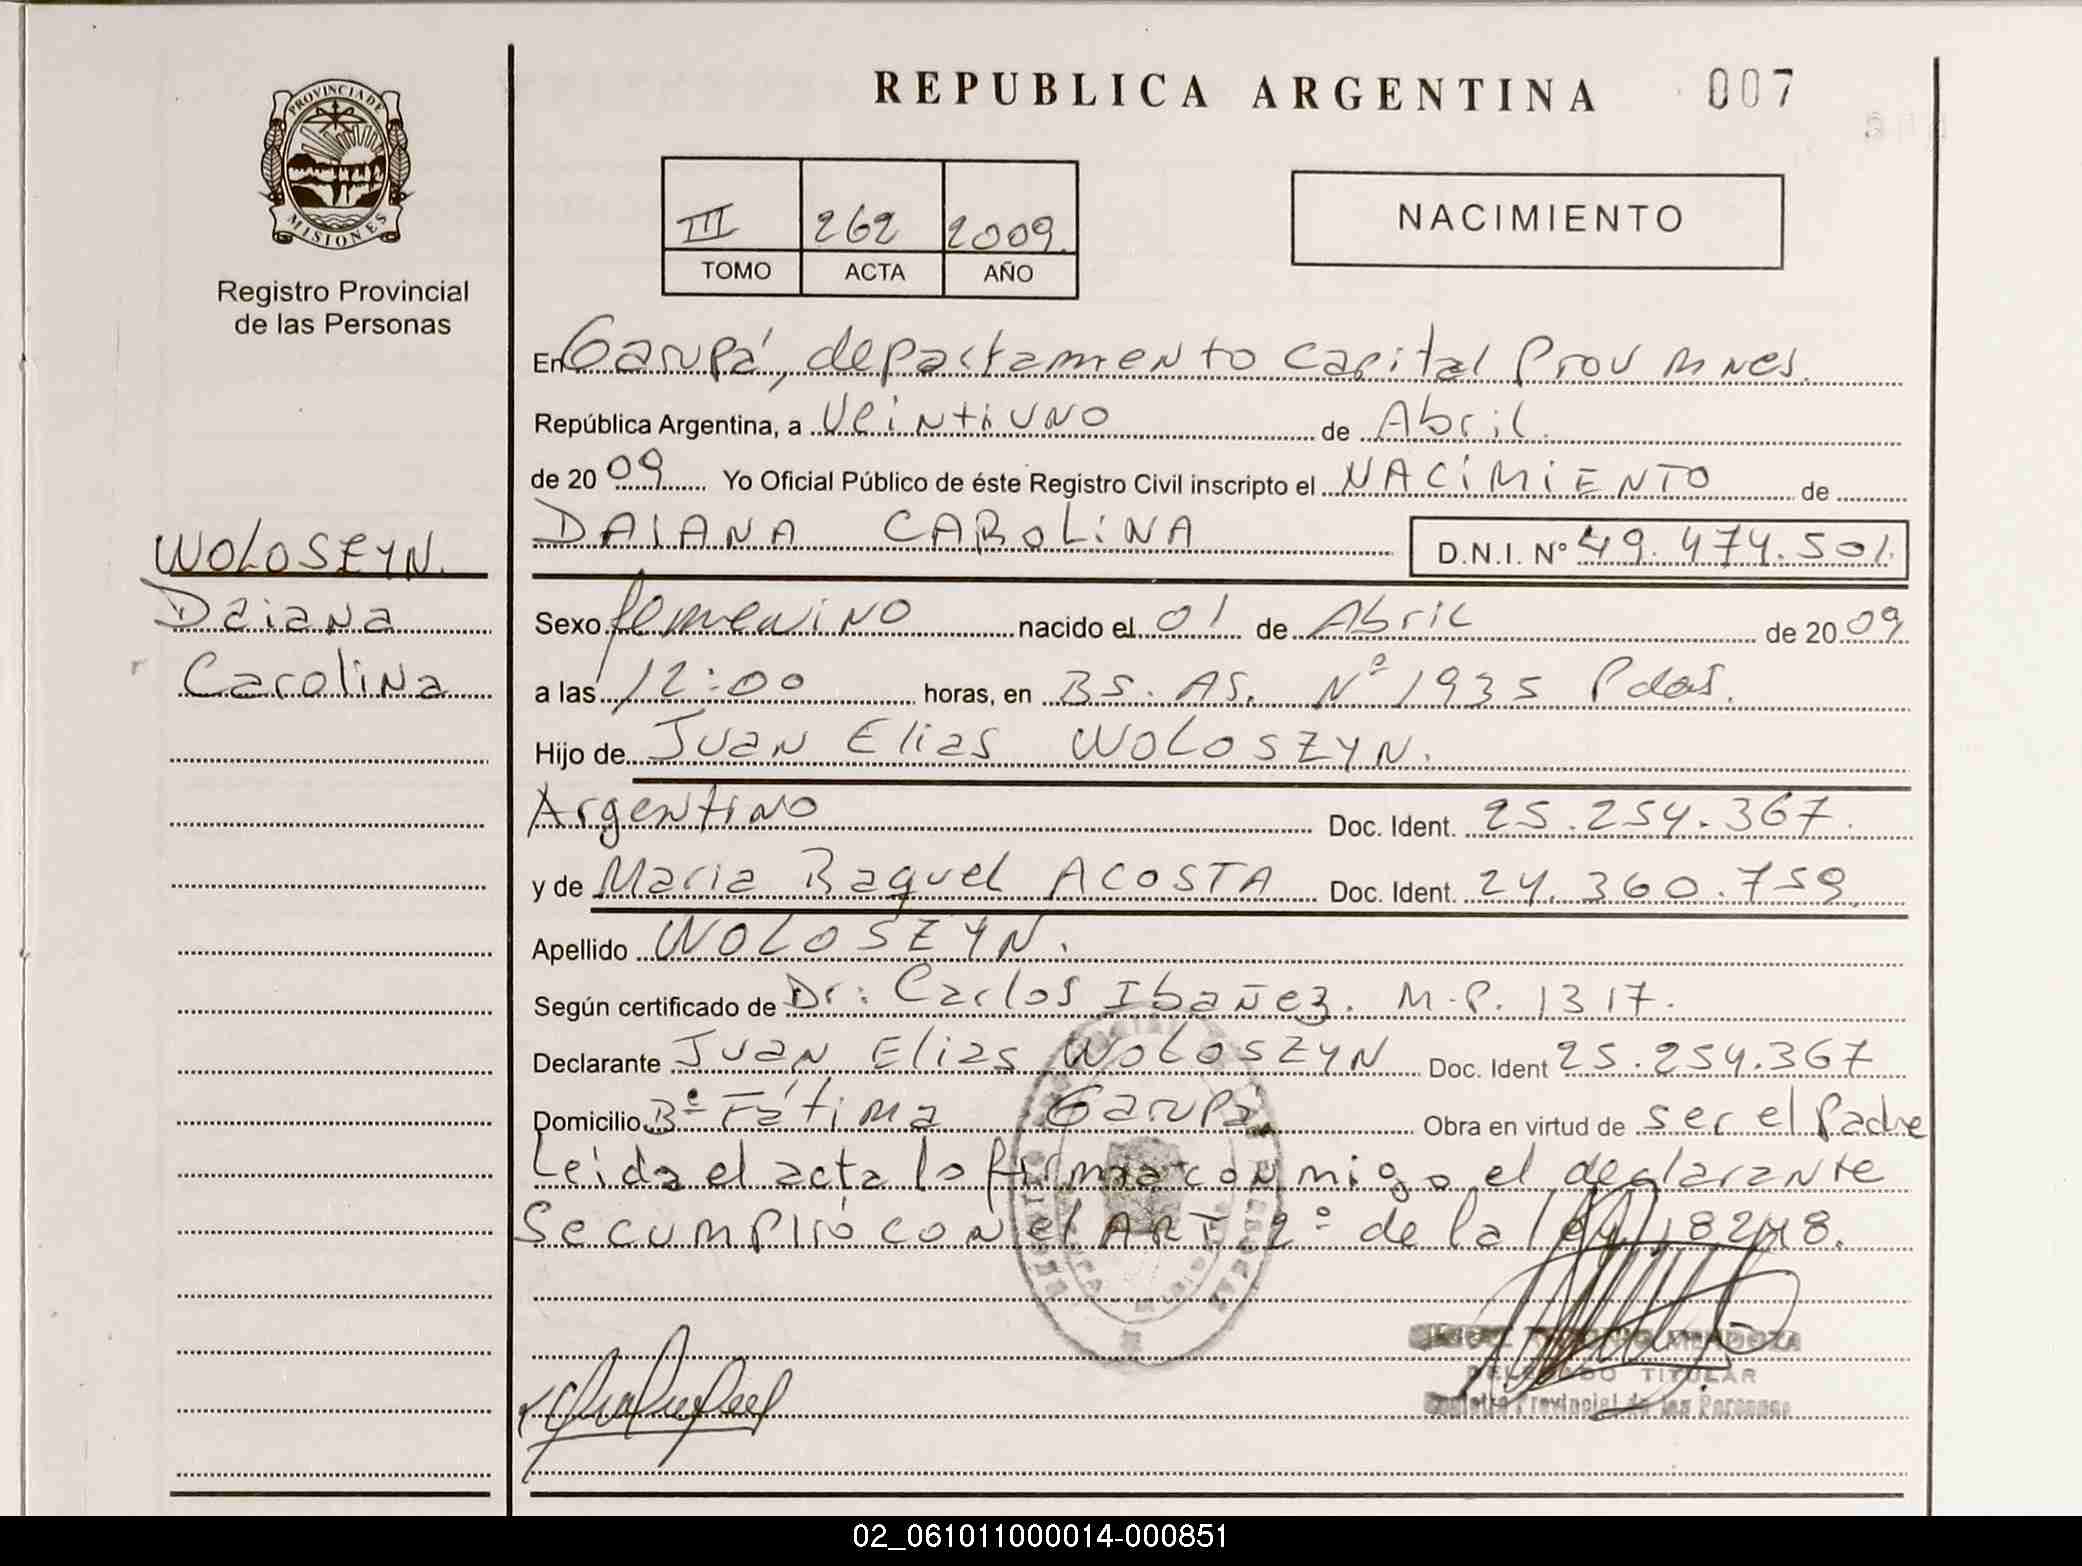 REPUBLICA ARGENTINA 007
PROVINCIA DE
MISIONES
Registro Provincial
de las Personas
III 262 2009.
TOMO ACTA AÑO
NACIMIENTO
En Garupá, departamento Capital Prov Mnes.
República Argentina, a Veintiuno de Abril.
de 2009 Yo Oficial Público de éste Registro Civil inscripto el NACIMIENTO de
DAIANA CAROLINA D.N.I. Nº 49.474.501.
WOLOSZYN.
Daiana
Carolina
Sexo femenino nacido el 01 de Abril de 2009
a las 12:00 horas, en BS. AS. Nº 1935 Pdas.
Hijo de Juan Elias WOLOSZYN.
Argentino Doc. Ident. 25.254.367.
y de Maria Raquel ACOSTA Doc. Ident. 24.360.759
Apellido WOLOSZYN.
Según certificado de Dr: Carlos Ibañez. M.P. 1317.
Declarante Juan Elias WOLOSZYN Doc. Ident 25.254.367
Domicilio Bº Fátima Garupá Obra en virtud de ser el Padre
Leida el acta la firma con migo el declarante
Se cumplió con el ART 2º de la ley 18248.
MENDOZA
DELEGADO TITULAR
Registro Provincial de las Personas
02_061011000014-000851